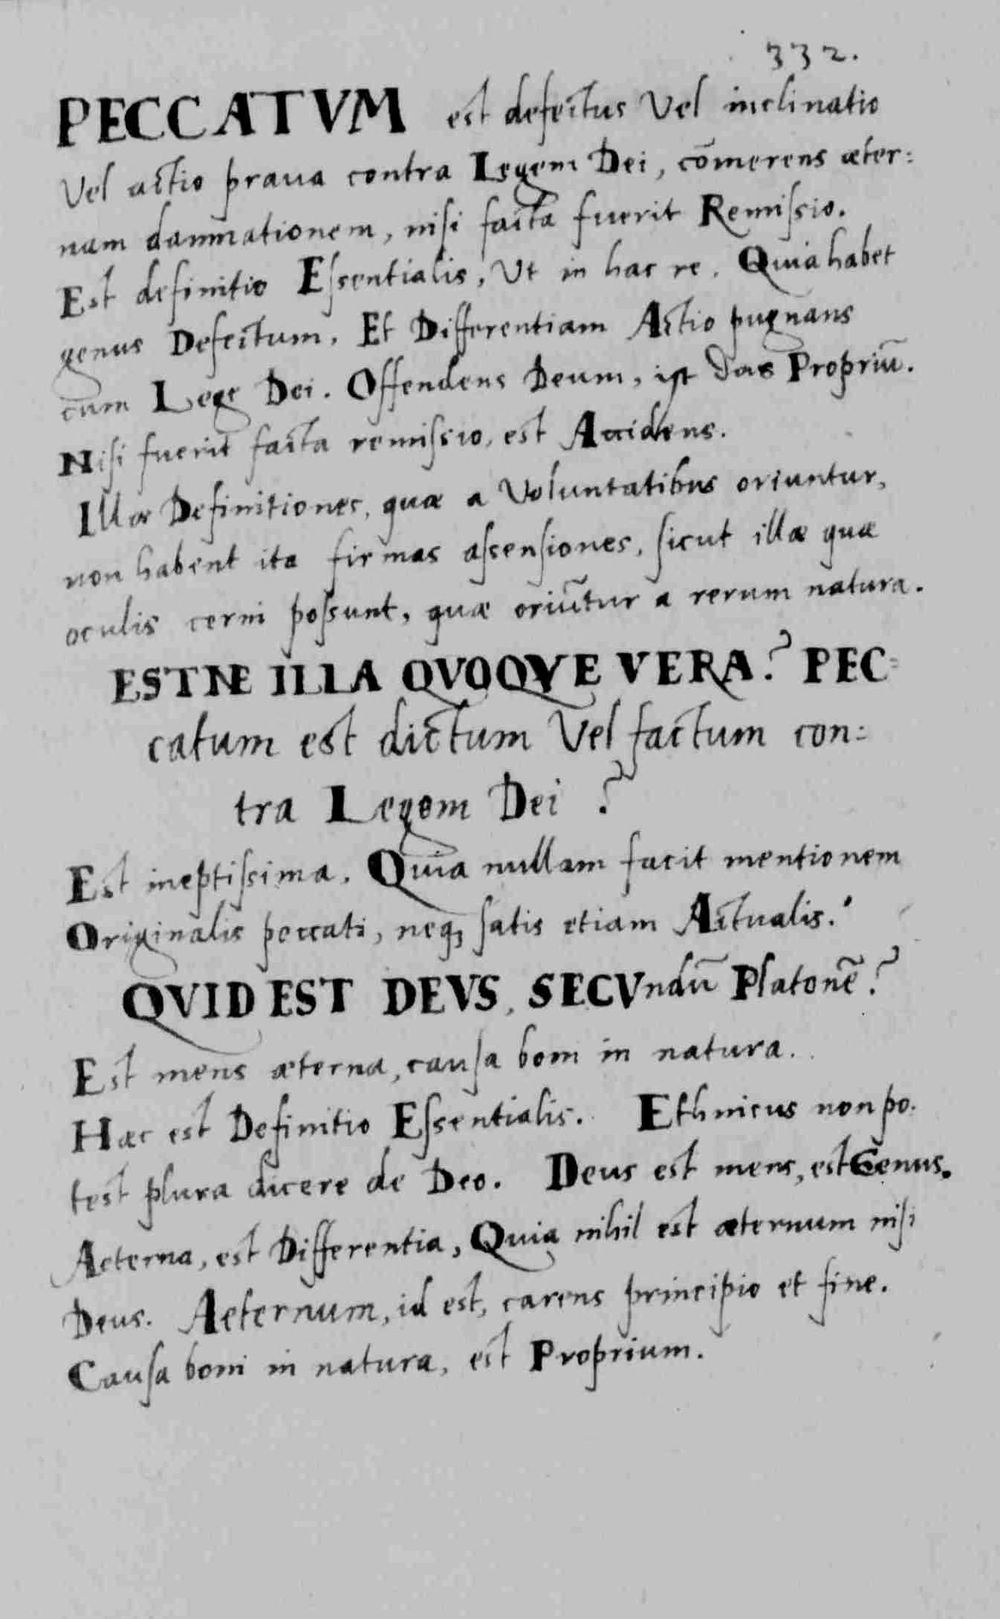 332.
PECCATVM est defectus Vel inclinatio
Vel actio praua contra Legem Dei, com̄erens æter:
nam damnationem, nisi facta fuerit Remissio.
Est definitio Essentialis, Vt in hac re. Quia habet
genus Defectum. Et Differentiam Actio pugnans
cum Lege Dei. Offendens Deum, ist das Propriū.
Nisi fuerit facta remissio, est Accidens.
Illæ Definitiones, quæ a Voluntatibus oriuntur,
non habent ita firmas assensiones, sicut illæ quæ
oculis cerni possunt, quæ oriūtur a rerum natura.
ESTNE ILLA QVOQVE VERA? PEC=
catum est dictum Vel factum con=
tra Legem Dei ?
Est ineptissima. Quia nullam facit mentionem
Originalis peccati, neq; satis etiam Actualis.
QVID EST DEVS, SECVndū Platonē?
Est mens æterna, causa boni in natura.
Hæc est Definitio Essentialis. Ethnicus non po.
test plura dicere de Deo. Deus est mens, est Genus.
Aeterna, est Differentia, Quia nihil est æternum nisi
Deus. Aeternum, id est, carens principio et fine.
Causa boni in natura, est Proprium.